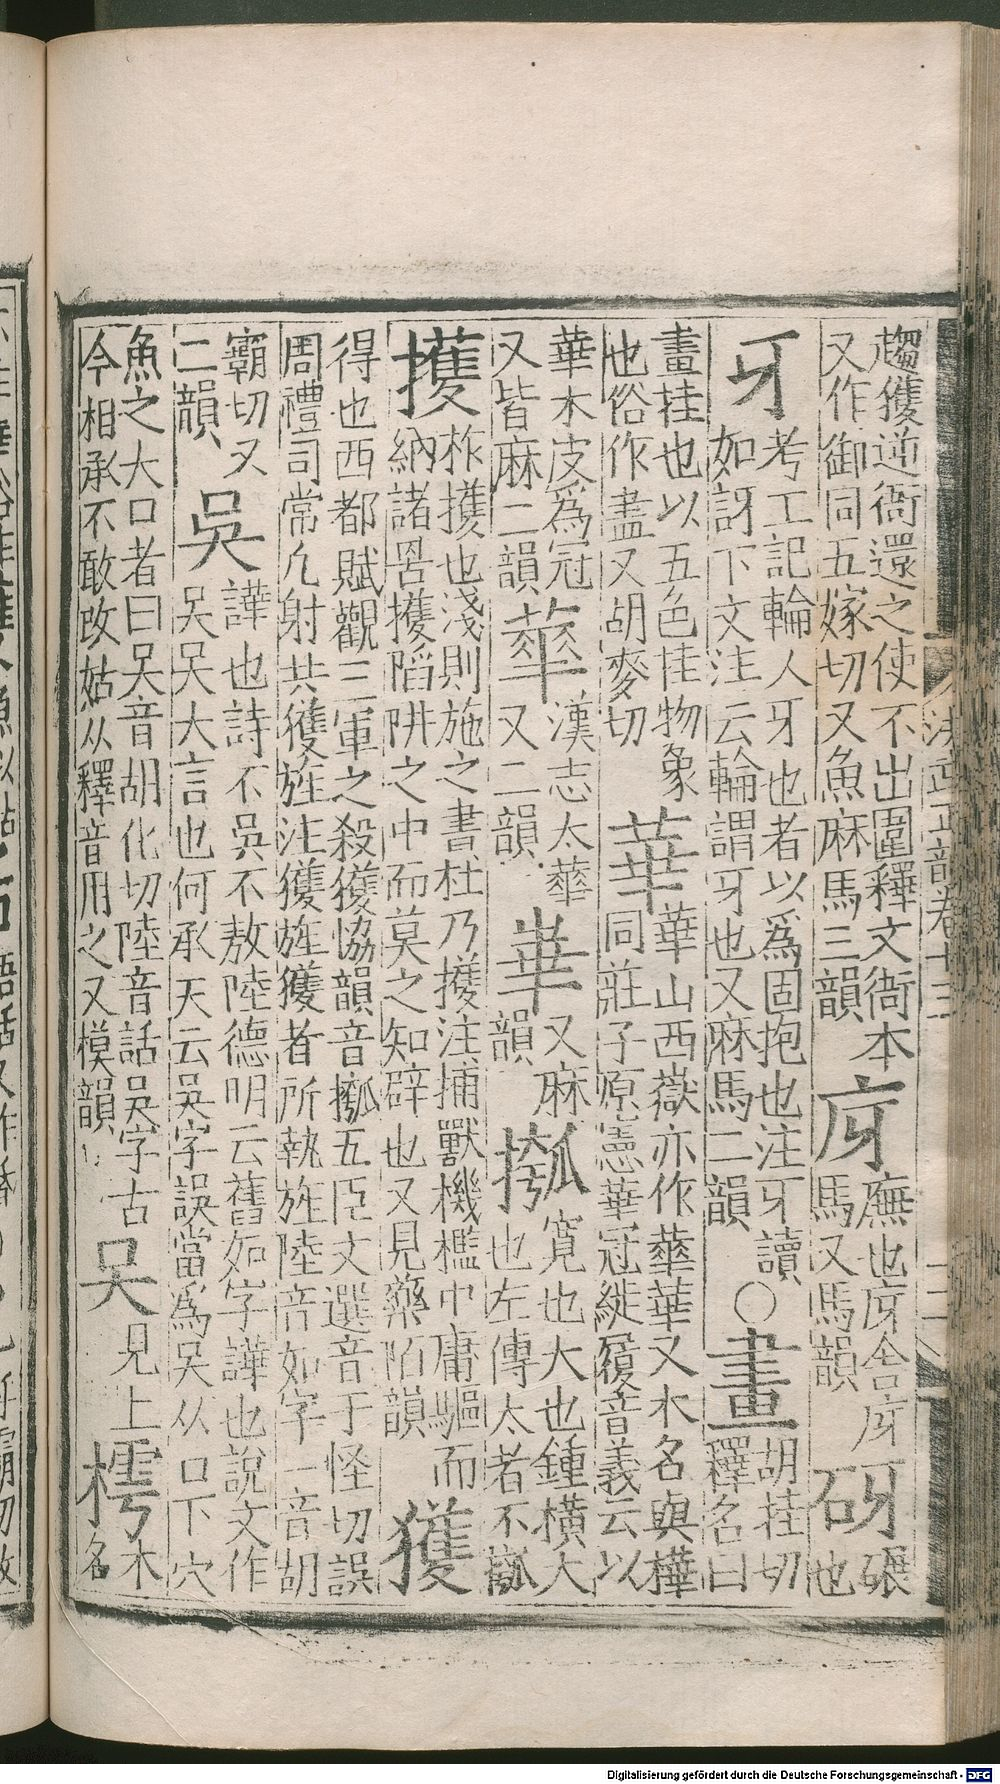 洪武正韻卷十三
趨獲逆衙還之使不出圍釋文衙本
又作御同五嫁切又魚麻馬三韻
庌
廡也庌舍庌
馬又馬韻
砑
碾
也
牙
考工記輪人牙也者以爲固抱也注牙讀
如訝下文注云輪謂牙也又麻馬二韻
○畫
胡挂切
釋名曰
畫挂也以五色挂物象
也俗作畵又胡麥切
華
華山西嶽亦作蕐華又木名與樺
同莊子原憲華冠縰履音義云以
華木皮爲冠
又皆麻二韻
蕐
漢志太蕐
又二韻
崋
又麻
韻
摦
寬也大也鍾橫大
也左傳太者不摦
擭
柞擭也淺則施之書杜乃擭注捕獸機檻中庸驅而
納諸罟擭陷阱之中而莫之知辟也又見藥陌韻
獲
得也西都賦觀三軍之殺獲協韻音摦五臣文選音于怪切誤
周禮司常凡射共獲旌注獲旌獲者所執旌陸音如字一音胡
霸切又
二韻
吳
譁也詩不吳不敖陸德明云舊如字譁也說文作
吴吴大言也何承天云吳字誤當爲吴从口下穴
魚之大口者曰吴音胡化切陸音話吳字古
今相承不敢改姑从釋音用之又模韻
吴
見上
樗
木
名
Digitalisierung gefördert durch die Deutsche Forschungsgemeinschaft - DFG